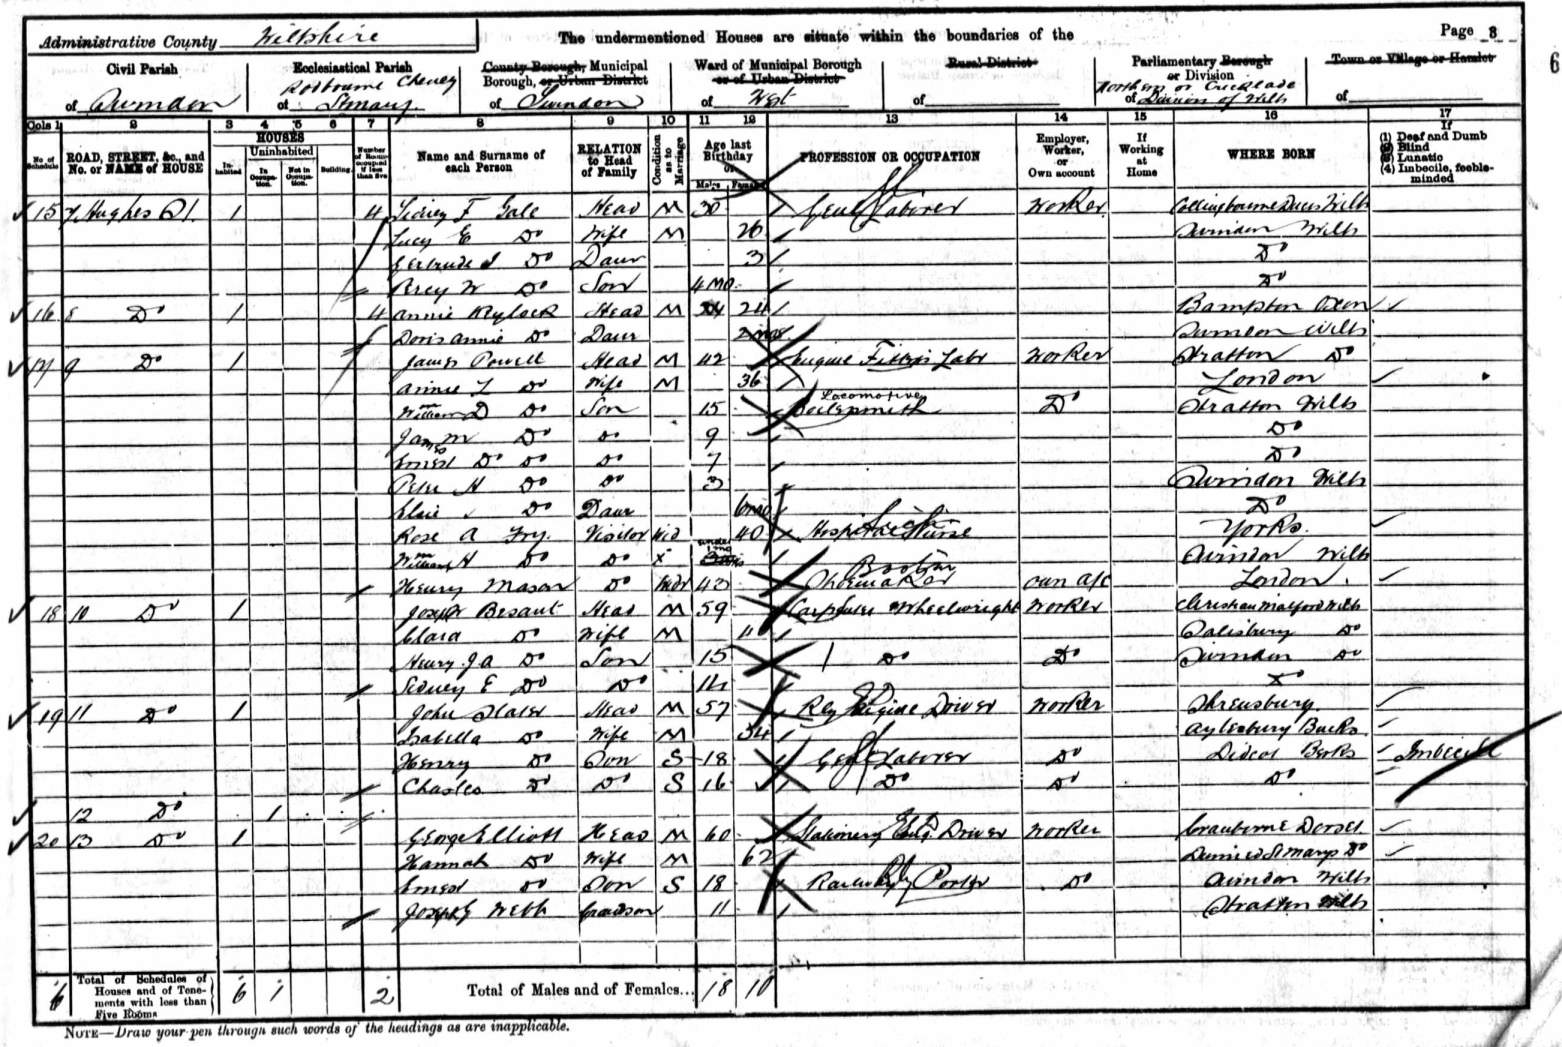 Administrative County Wiltshire
The undermentioned Houses are situate within the boundaries of the
Page 8
6
Civil Parish of Swindon
Ecclesiastical Parish of Rodbourne Cheney St Marys
County Borough, Municipal Borough, or Urban District of Swindon
Ward of Municipal Borough or of Urban District of West
Rural District of
Parliamentary Borough or Division of Northern or Cricklade Division of Wilts
Town or Village or Hamlet of
Cols 1 2 3 4 5 6 7 8 9 10 11 12 13 14 15 16 17
No. of Schedule
ROAD, STREET, &c., and No. or NAME of HOUSE
HOUSES
Inhabited
Uninhabited
In Occupation.
Not in Occupation.
Building.
Number of Rooms occupied if less than five
Name and Surname of each Person
RELATION to Head of Family
Condition as to Marriage
Age last Birthday of
Males Females
PROFESSION OR OCCUPATION
Employer, Worker, or Own account
If Working at Home
WHERE BORN
If (1) Deaf and Dumb (2) Blind (3) Lunatic (4) Imbecile, feeble-minded
15 7 Hughes St. 1 4 Sidney F Gale Head M 30 Genl Laborer Worker Collingbourne Ducis Wilts
Lucy E Do Wife M 26 Swindon Wilts
Gertrude I Do Daur 3 Do
Percy W Do Son 4 mo. Do
16 8 Do 1 4 Annie Keylock Head M 24 Bampton Oxon
Doris Annie Do Daur 2 mos Swindon Wilts
17 9 Do 1 James Powell Head M 42 Engine Fitter's Labr Worker Stratton Do
Annie L Do Wife M 36 London
William D Do Son 15 Locomotive Boilersmith Do Stratton Wilts
James M Do Do 9 Do
Ernest D Do Do 7 Do
Peter H Do Do 3 Swindon Wilts
Elsie Do Daur 6 mo Do
Rose A Fry. Visitor Wid 40 Hospital Nurse Yorks.
William H Do Do X under 1 mo Swindon Wilts
Henry Mason Do Widr 43 Shoemaker own a/c London.
18 10 Do 1 Joseph Besant Head M 59 Carpenter Wheelwright Worker Christian Malford Wilts
Clara Do Wife M Salisbury Do
Henry J A Do Son 15 Do Do Swindon Do
Sidney E Do Do 14 Do
19 11 Do 1 John Slater Head M 57 Rly Engine Driver Worker Shrewsbury.
Isabella Do Wife M 54 Aylesbury Bucks.
Henry Do Son S 18 Genl Laborer Do Didcot Berks Imbecile
Charles Do Do S 16 Do Do Do
12 Do 1
20 13 Do 1 George Elliott Head M 60 Stationery Eng. Driver Worker Cranborne Dorset
Hannah Do Wife M 62 St Marys Do
Ernest Do Son S 18 Railway Porter Do Swindon Wilts
Joseph G Webb Grandson 11 Stratton Wilts
6 Total of Schedules of Houses and of Tenements with less than Five Rooms 6 1 2 Total of Males and of Females... 18 10
NOTE—Draw your pen through such words of the headings as are inapplicable.